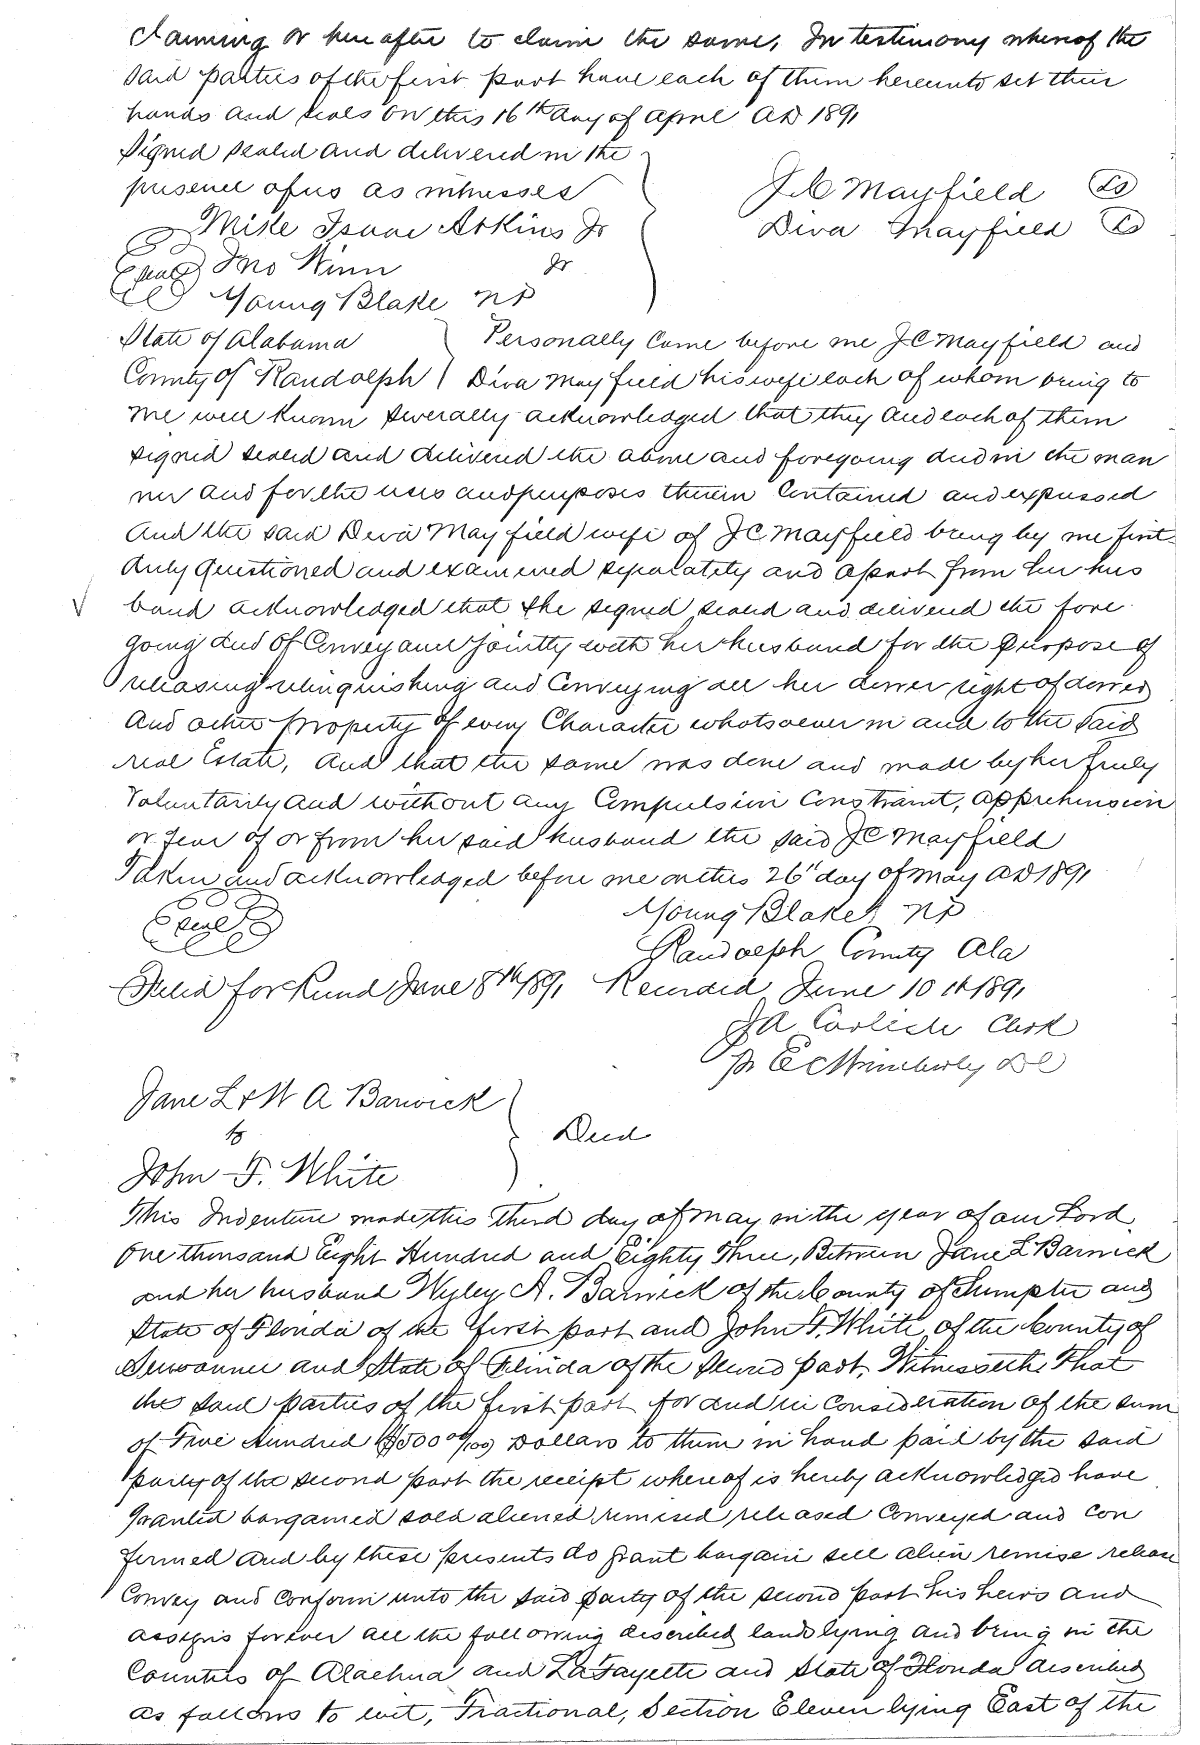 claiming or hereafter to claim the same, In testimony whereof the
said parties of the first part have each of them hereunto set their
hands and seals on this 16th day of April AD 1891
Signed sealed and delivered in the
presence of us as witnesses
J.C Mayfield LS
Diva Mayfield LS
Mike Isaac Askins Jr
Seal Jno Winn Jr
Young Blake NP
State of Alabama Personally Came before me J C Mayfield and
County of Randolph Diva Mayfield his wife each of whom being to
me well known severally acknowledged that they and each of them
signed sealed and delivered the above and foregoing deed in the man
ner and for the uses and purposes therein Contained and expressed
And the said Diva Mayfield wife of J C Mayfield being by me first
duly questioned and examined separately and apart from her hus
band acknowledged that she signed sealed and delivered the fore
going deed of Conveyance jointly with her husband for the purpose of
releasing relinquishing and Conveying all her dower right of dower
And other property of every Character whatsoever in and to the said
real Estate, and that the same was done and made by her freely
Voluntarily and without any Compulsion Constraint, apprehension
or fear of or from her said husband the said J C Mayfield
Taken and acknowledged before me on this 26" day of May AD 1891
Seal Young Blake NP
Randolph County Ala
Filed for Record June 8th 1891 Recorded June 10th 1891
J A Carlisle Clerk
pr E C Wimberly DC
Jane L & W A Barwick
to Deed
John F. White
This Indenture made this Third day of May in the year of our Lord
One thousand Eight Hundred and Eighty Three, Between Jane L Barwick
and her husband Wyley A. Barwick of the County of Sumpter and
State of Florida of the first part and John F. White of the County of
Suwannee and State of Florida of the second part, Witnesseth That
the said parties of the first part for and in consideration of the sum
of Five Hundred ($500 00/100) Dollars to them in hand paid by the said
party of the second part the receipt whereof is hereby acknowledged have
granted bargained sold aliened remised released Conveyed and Con
firmed and by these presents do grant bargain sell alien remise release
Convey and Confirm unto the said party of the second part his heirs and
assigns forever all the following described lands lying and being in the
Counties of Alachua and LaFayette and State of Florida described
as follows to wit, Fractional, Section Eleven lying East of the